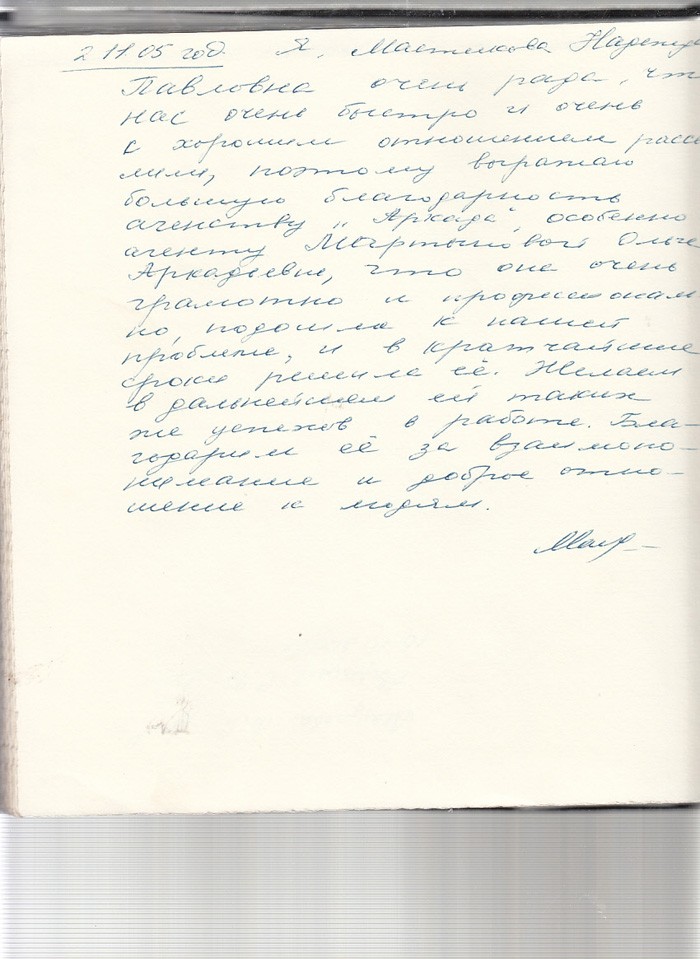 2 11 05 год. Я, Мастюкова Надежда
Павловна очень рада, что
нас очень быстро и очень
с хорошим отношением рассе
лили, поэтому выражаю
большую благодарность
агенству „Аркада", особенно
агенту Мартыновой Ольге
Аркадьевне, что она очень
грамотно и профессионал
но, подошла к нашей
проблеме, и в кратчайшие
сроки решила её. Желаем
в дальнейшем ей таких
же успехов в работе. Бла-
годарим её за взаимопо-
нимание и доброе отно-
шение к людям.